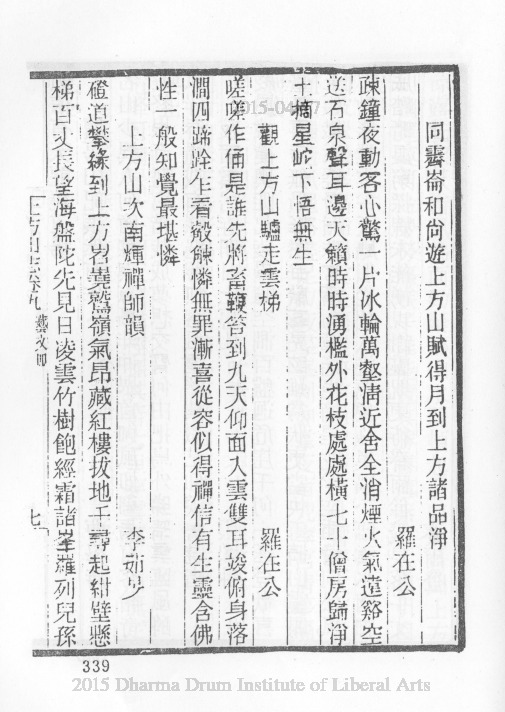 同霽崙和尙遊上方山賦得月到上方諸品淨
羅在公
疎鐘夜動客心驚一片冰輪萬壑淸近舍全消煙火氣遠谿空
送石泉聲耳邊天籟時時湧檻外花枝處處橫七十僧房歸淨
土摘星蛇下悟無生
觀上方山驢走雲梯
羅在公
嗟嗟作俑是誰先將畜鞭笞到九天仰面入雲雙耳竣俯身落
澗四蹄跧乍看觳觫憐無罪漸喜從容似得禪信有生靈含佛
性一般知覺最堪憐
上方山次南煇禪師韻
李茹旹
磴道攀緣到上方岧嶤鷲嶺氣昂藏紅樓拔地千尋起紺壁懸
梯百丈長望海盤陀先見日凌雲竹樹飽經霜諸峯羅列兒孫
上方山志卷九
藝文
七
339
2015-04-17
2015 Dharma Drum Institute of Liberal Arts